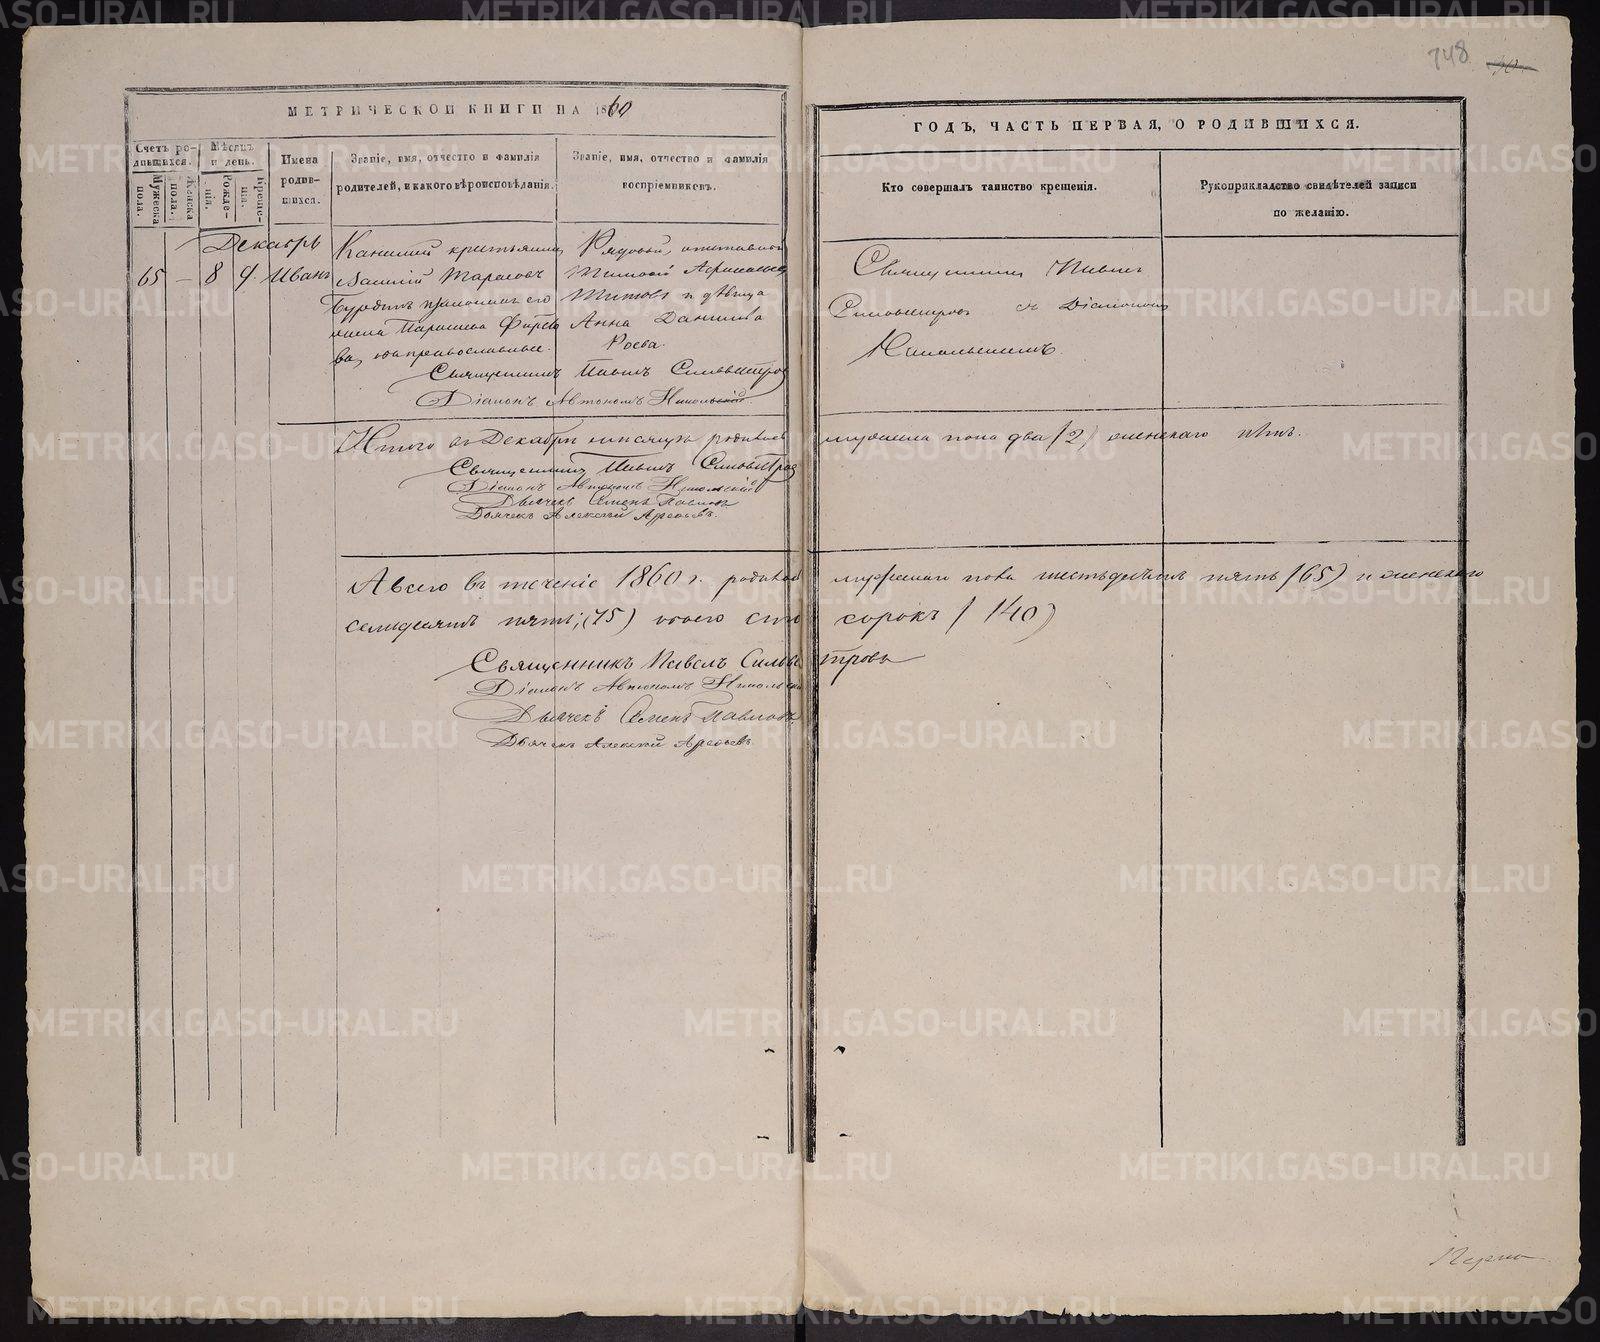 748
МЕТРИЧЕСКОЙ КНИГИ НА 1860
ГОДЪ, ЧАСТЬ ПЕРВАЯ, О РОДИВШИХСЯ.
Счетъ родившихся.
Мужеска пола.
Женска пола.
Мѣсяцъ и день.
Рожденія.
Крещенія.
Имена родившихся.
Званіе, имя, отчество и фамилія родителей, и какого вѣроисповѣданія.
Званіе, имя, отчество и фамилія воспріемниковъ.
Кто совершалъ таинство крещенія.
Рукоприкладство свидѣтелей записи по желанію.
Декабрь
65 — 8 9. Иванъ
крестьянинъ
Василій Тарасовъ
его
жена Параскева Фирсо
ва, оба православные.
Рядовой, отставной
Титовъ и дѣвица
Анна Данилова
Священникъ Павелъ
Сильвестровъ съ Діакономъ
Никольскимъ.
Священникъ Павелъ Сильвестровъ
Діаконъ Автономъ Никольскій.
Итого въ Декабрѣ мѣсяцѣ родилось мужеска пола два (2) женскаго нѣтъ.
Священникъ Павелъ Сильвестровъ
Діаконъ Автономъ Никольскій
Дьячекъ Семенъ Павловъ
Дьячекъ Алексѣй Арефьевъ.
А всего въ теченіе 1860 г. родилось мужескаго пола шестьдесятъ пять (65) и женскаго
семьдесятъ пять; (75) обоего сто сорокъ (140)
Священникъ Павелъ Сильвестровъ
Діаконъ Автономъ Никольскій
Дьячекъ Семенъ Павловъ
Дьячекъ Алексѣй Арефьевъ.
METRIKI.GASO-URAL.RU